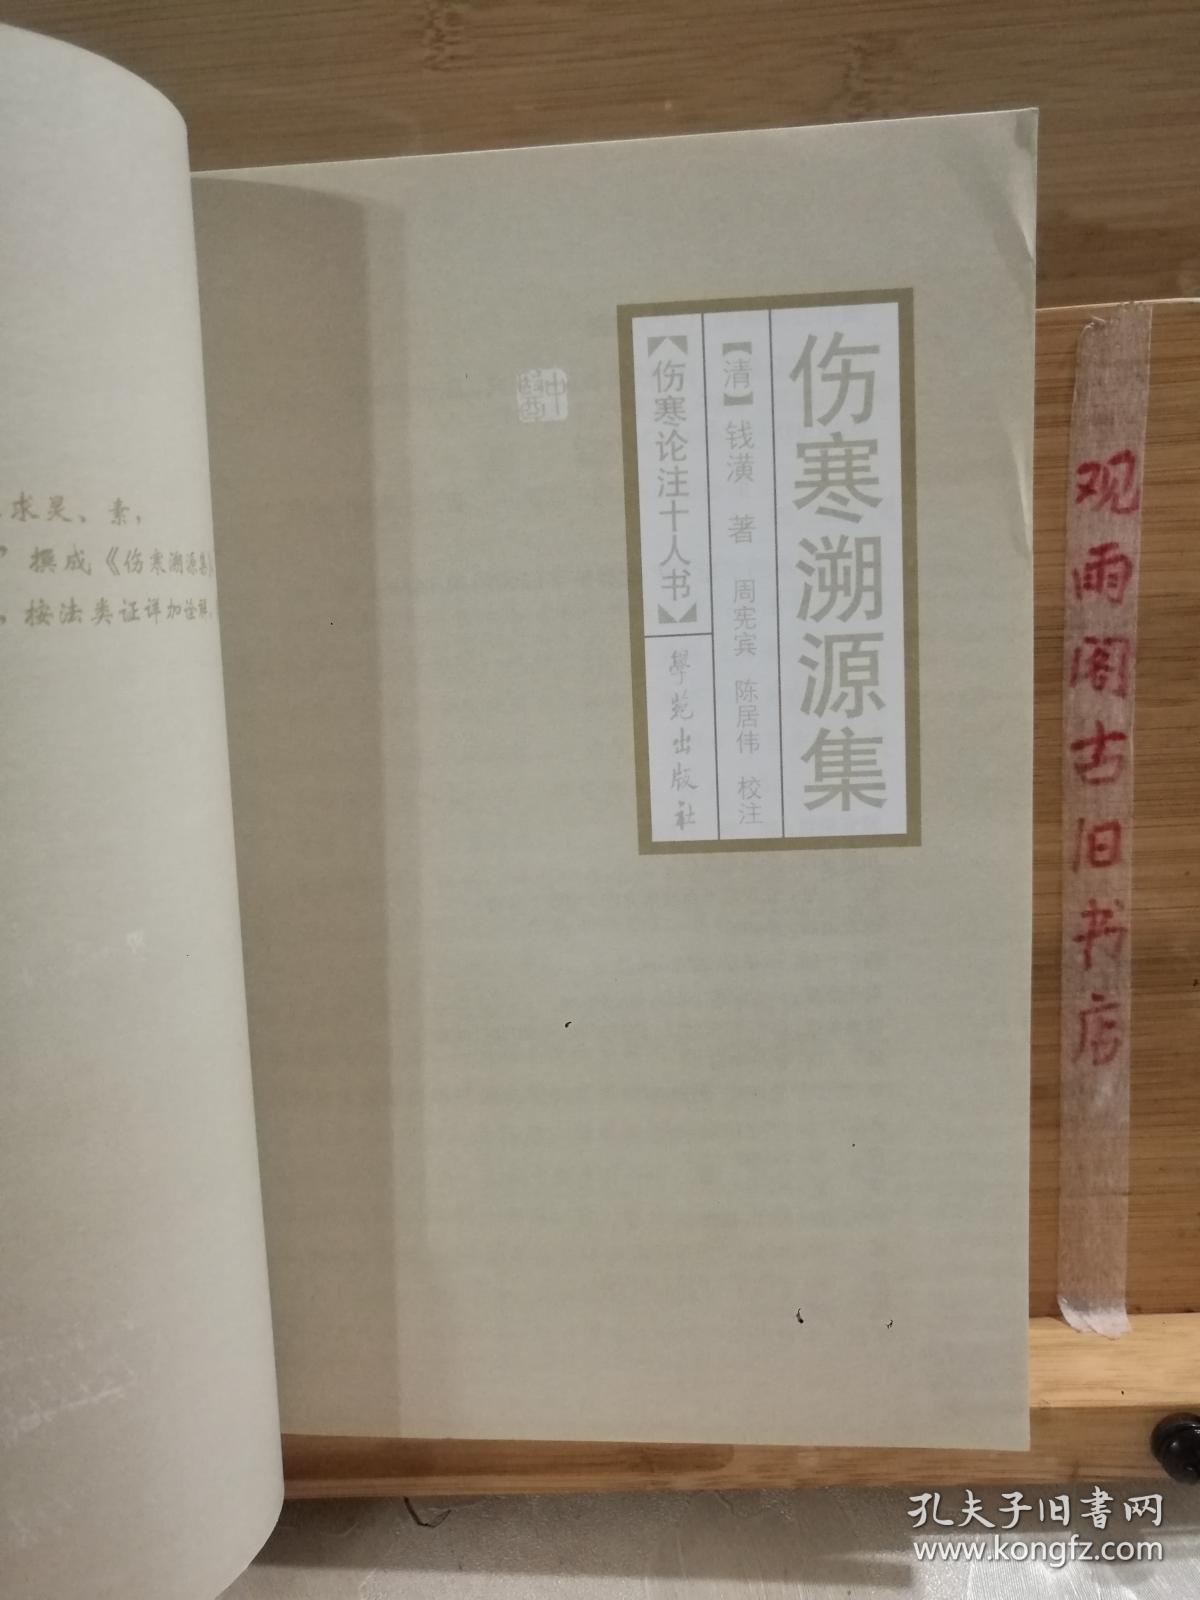 求灵、素，
”撰成《伤寒溯源集》
，按法类证详加诠解，
伤寒溯源集
【清】钱潢 著 周宪宾 陈居伟 校注
【伤寒论注十人书】
學苑出版社
中醫
观雨阁古旧书店
孔夫子旧書网
www.kongfz.com